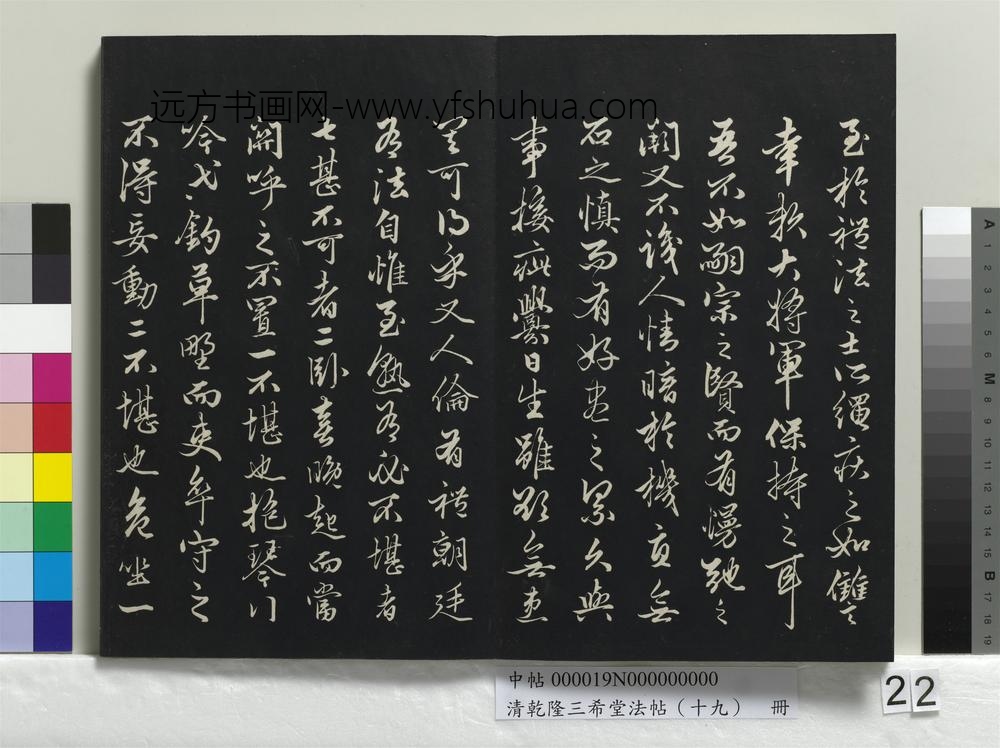 远方书画网-www.yfshuhua.com
至於禮法之士所繩疾之如讎
幸賴大將軍保持之耳
吾不如嗣宗之賢而有慢弛之
闕又不識人情暗於機宜無
石之慎而有好盡之累久與
事接疵釁日生雖欲無患
其可得乎又人倫有禮朝廷
有法自惟至熟有必不堪者
七甚不可者二臥喜晚起而當
關呼之不置一不堪也抱琴行
吟弋釣草野而吏卒守之
不得妄動二不堪也危坐一
中帖 000019N000000000
清乾隆三希堂法帖（十九） 冊
22
A 1 2 3 4 5 6 M 8 9 10 11 12 13 14 15 B 17 18 19